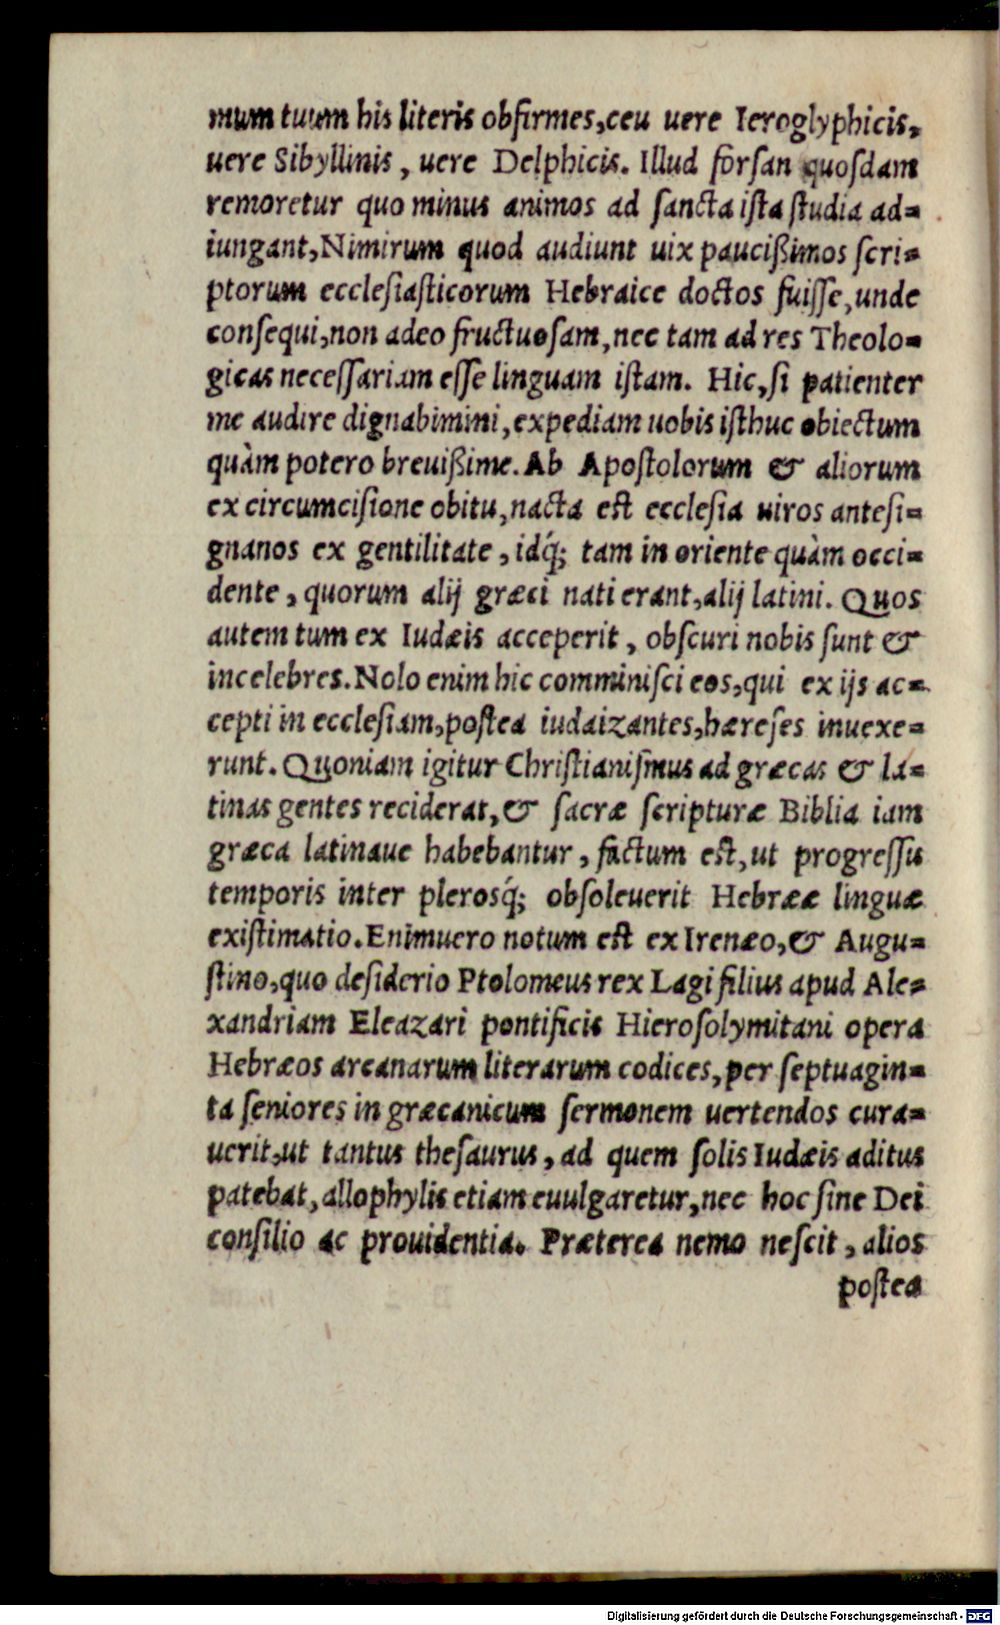 mum tuum his literis obfirmes,ceu uere Ieroglyphicis,
uere Sibyllinis, uere Delphicis. Illud forſan quoſdam
remoretur quo minus animos ad ſancta iſta ſtudia ad=
iungant,Nimirum quod audiunt uix pauciſſimos ſcri=
ptorum eccleſiaſticorum Hebraice doctos fuiſſe,unde
conſequi,non adeo fructuoſam,nec tam ad res Theolo=
gicas neceſſariam eſſe linguam iſtam. Hic,ſi patienter
me audire dignabimini,expediam uobis iſthuc obiectum
quàm potero breuißime. Ab Apoſtolorum & aliorum
ex circumciſione obitu,nacta eſt eccleſia uiros anteſi=
gnanos ex gentilitate, idq́; tam in oriente quàm occi=
dente, quorum alij græci nati erant,alij latini. Quos
autem tum ex Iudæis acceperit, obſcuri nobis ſunt &
incelebres. Nolo enim hic comminiſci eos,qui ex ijs ac=
cepti in eccleſiam,poſtea iudaizantes,hæreſes inuexe=
runt. Quoniam igitur Chriſtianiſmus ad græcas & la=
tinas gentes reciderat,& ſacræ ſcripturæ Biblia iam
græca latinaue habebantur, factum eſt,ut progreſſu
temporis inter plerosq́; obſoleuerit Hebrææ linguæ
exiſtimatio. Enimuero notum eſt ex Irenæo,& Augu=
ſtino,quo deſiderio Ptolomeus rex Lagi filius apud Ale=
xandriam Eleazari pontificis Hieroſolymitani opera
Hebræos arcanarum literarum codices,per ſeptuagin=
ta ſeniores in græcanicum ſermonem uertendos cura=
uerit,ut tantus theſaurus, ad quem ſolis Iudæis aditus
patebat,allophylis etiam euulgaretur,nec hoc ſine Dei
conſilio ac prouidentia. Præterea nemo neſcit, alios
poſtea
Digitalisierung gefördert durch die Deutsche Forschungsgemeinschaft - DFG